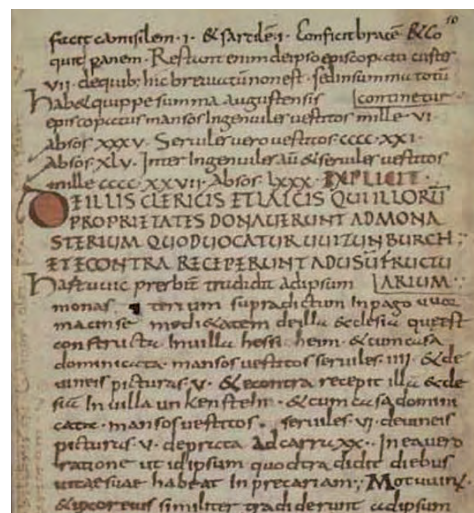 10
facit camisilem · I · & sartilē · I · Conficit bracē & co
quit panem · Restant enim de ipso episcopatu curtes
VII · de quib; hic breviatū non est · sed in summa totū
Habet quippe summa augustensis | continetur
episcopatus mansos ingenuiles vestitos mille · VI ·
absos XXXV · Serviles vero vestitos · CCCC · XXI ·
absos XLV · Inter ingenuiles aū & serviles vestitos
mille CCCC · XXVII · Absos · LXXX · EXPLICIT ·
DE ILLIS CLERICIS ET LAICIS QUI ILLORŪ
PROPRIETATES DONAUERUNT AD MONA
STERIUM QUOD UOCATUR UUIZUNBURCH
ET E CONTRA RECEPERUNT AD USŪ FRUCTU
Hartuuic presbit̄ tradidit ad ipsum | ARIUM
monasterium supradictum in pago uuor
macinse medi&atem de illa ecclesia que est
constructa in villa hessiheim · & cum casa
dominicata · mansos vestitos serviles · IIII · & de
vineis picturas · V · & econtra recepit illā eccle
siā in villa unkenstein · & cum casa domini
cata · mansos vestitos · serviles · VI · de vineis
picturas · V · de prata ad carrū XX · · In ea vero
ratione ut id ipsum quod tradidit diebus
vitae suae habeat in precariam ; Motuuin
& uxor eius similiter tradiderunt ad ipsum